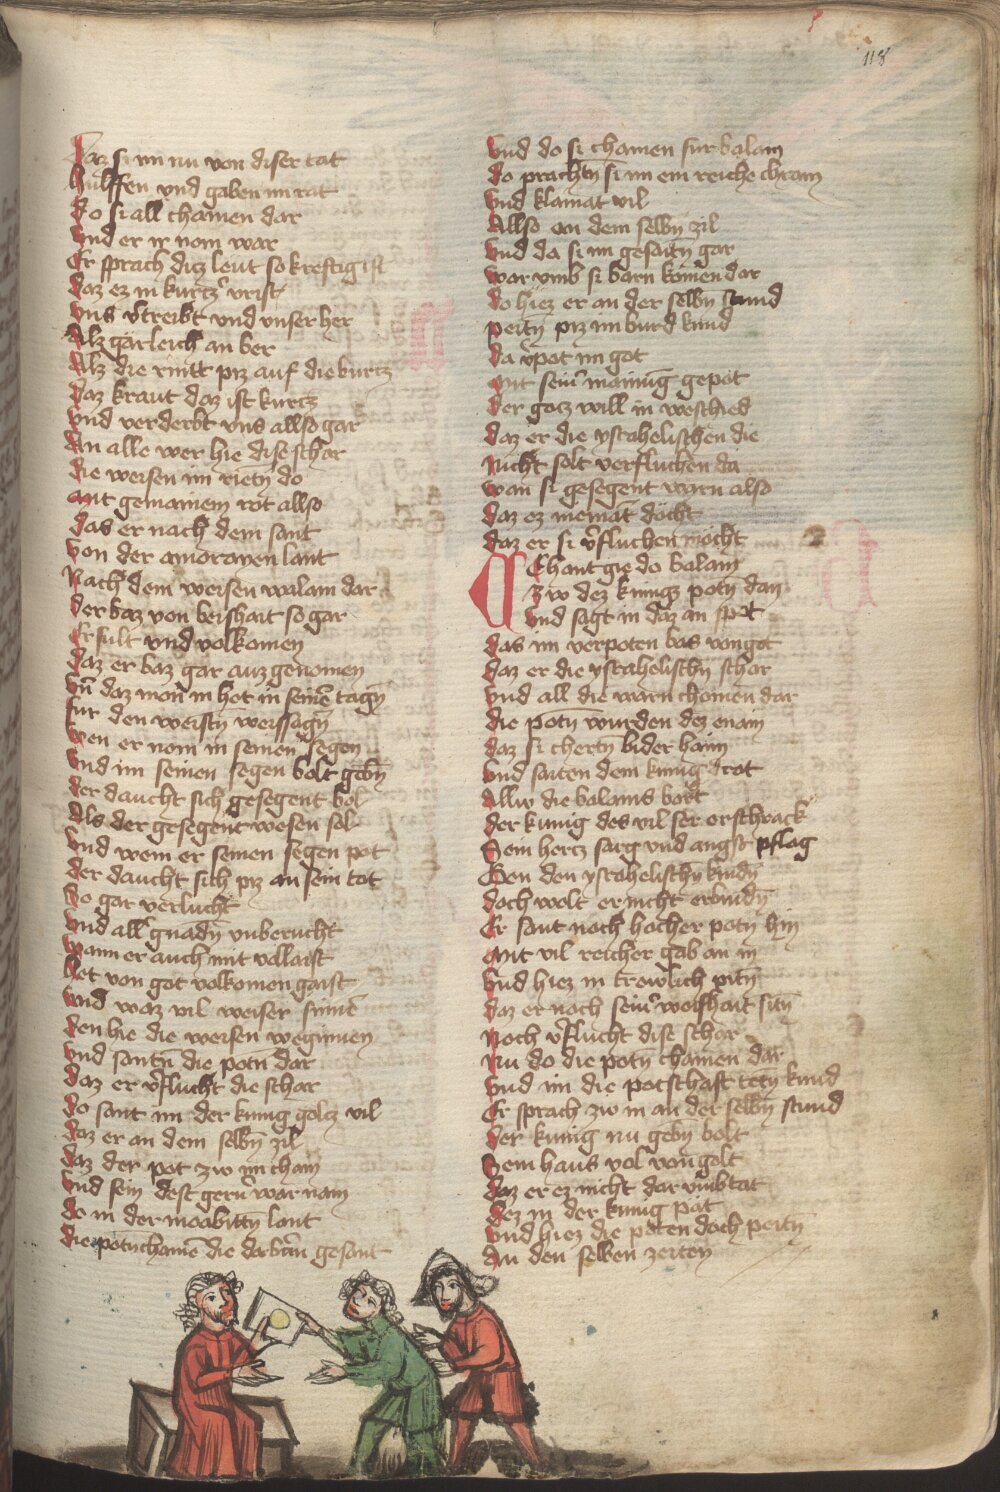 118
Daz si im nu von diser tat
hulffen vnd gaben im rat
do si all chamen dar
vnd er ir nom war
Er sprach ditz leut so kreftig ist
daz ez in kurtzer vrist
vns vertreibt vnd vnser her
Alz gärleich an ber
Alz die rintt piz auf die burtz
daz kraut daz ist kurtz
vnd verderbt vns allso gar
An alle wer hie dise schar
die weisen im rietn do
mit gemainem rot allso
das er nach dem sant
von der amorayen lant
Nach dem weisen walam dar
der baz von beishait so gar
Erfult vnd volkomen
daz er baz gar auzgenomen
vn daz mon in het in seine tagn
fur den weistn weissagn
wen er nom in seinen segen
vnd im seinen segen bolt gebn
der daucht sich gesegent bol
Als der gesegent wesen sol
vnd wem er seinen segen pot
der daucht sich piz an sein tot
do gar verlucht
vnd all gnadn vnberucht
wann er auch mit vollaist
het von got volkomen gaist
vnd waz vil weiser sinne
den hie die weisen weginnen
vnd santn die potn dar
daz er vflucht die schar
do sant im der kunig goltz vil
daz er an dem selbn zil
daz der pot zw im cham
vnd sein dest gern war nam
do in der moabittn lant
die potn chame die dar barn gesant
vnd do si chamen fur balam
do prachtn si im ein reiche chram
vnd klainat vil
Allso an dem selbn zil
vnd da si im gesaitn gar
war vmb si barn komen dar
do hiez er an der selbn stund
peitn piz im burd kund
da vpot im got
mit seinr mainug gepot
der gotz will in weschied
daz er die ysrahelischen die
nicht solt verfluchen da
wan si gesegent warn also
daz ez niemat docht
daz er si vfluchen mocht
Zehant gie do balam
zw dez kunigs potn dan
vnd sagt in daz an spot
das im verpoten bas von got
daz er die ysrahelischn schar
vnd all die warn chomen dar
die potn wurden dez enam
daz si chertn bider haim
vnd saiten dem kunig drot
Allw die balams bort
der kunig des vil ser erschrack
Sein hertz sarg vnd angst pflag
Gen den ysrahelischn kindn
doch wolt er nicht erbindn
Er sant noch hocher potn hin
mit vil reicher gab an in
vnd hiez in trewlich pitn
daz er noch seinr weishait sitn
Noch vflucht dise schar
Nu do die potn chamen dar
vnd im die potschaft tetn kund
Er sprach zw in an der selbn stund
der kunig nu gebn bolt
Sein haus vol von golt
daz er ez nicht dar vmb tat
dez in der kunig pat
vnd hiez die poten doch peitn
An den selben zeiten